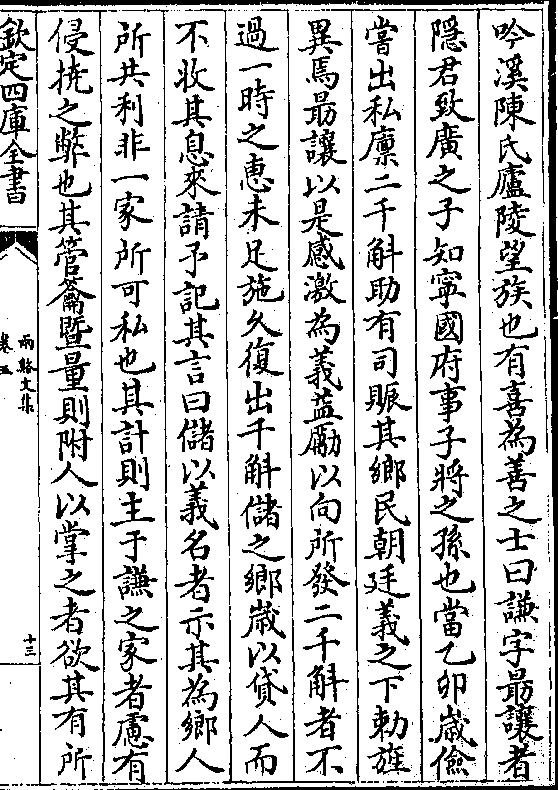 吟溪陳氏廬陵望族也有喜為善之士曰謙字最讓者
隱君致廣之子知寧國府事子將之孫也當乙卯嵗儉
嘗出私廪二千斛助有司賑其鄉民朝廷義之下勅旌
異焉最讓以是感激為義益勵以向所發二千斛者不
過一時之恵未足施久復出千斛儲之鄉嵗以貸人而
不收其息來請予記其言曰儲以義名者示其為鄉人
所共利非一家所可私也其計則主于謙之家者慮有
侵撓之弊也其管籥暨量則附人以掌之者欲其有所
欽定四庫全書
兩谿文集
卷五
十三